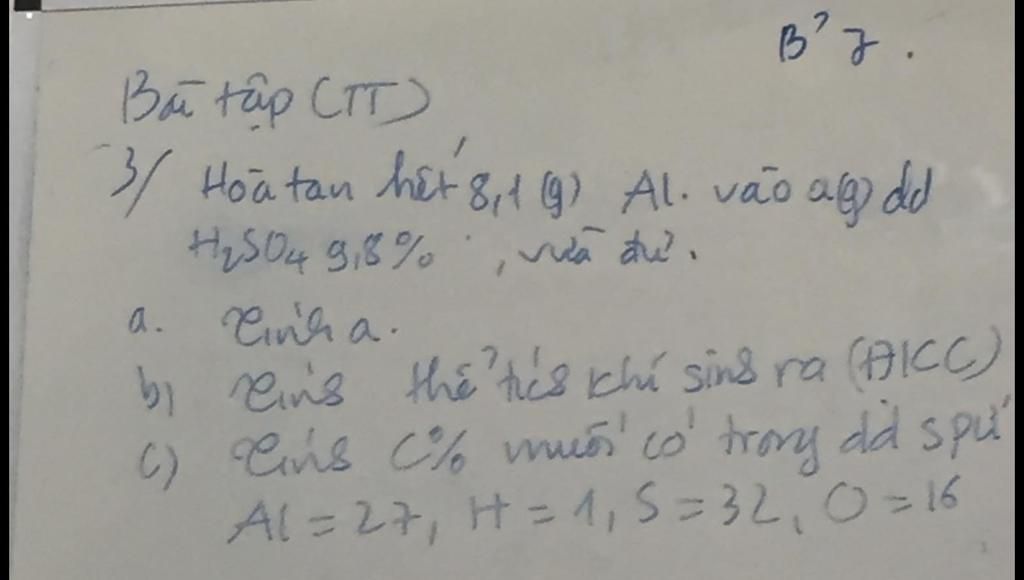 B² 7.
Bài tập (TT)
3/ Hòa tan hết 8,1 (g) Al. vào a(g) dd
H₂SO₄ 9,8% , vừa đủ.
a. Tính a.
b) Tính thể tích khí sinh ra (ĐKC)
c) Tính C% muối có trong dd spứ
Al = 27, H = 1, S = 32, O = 16